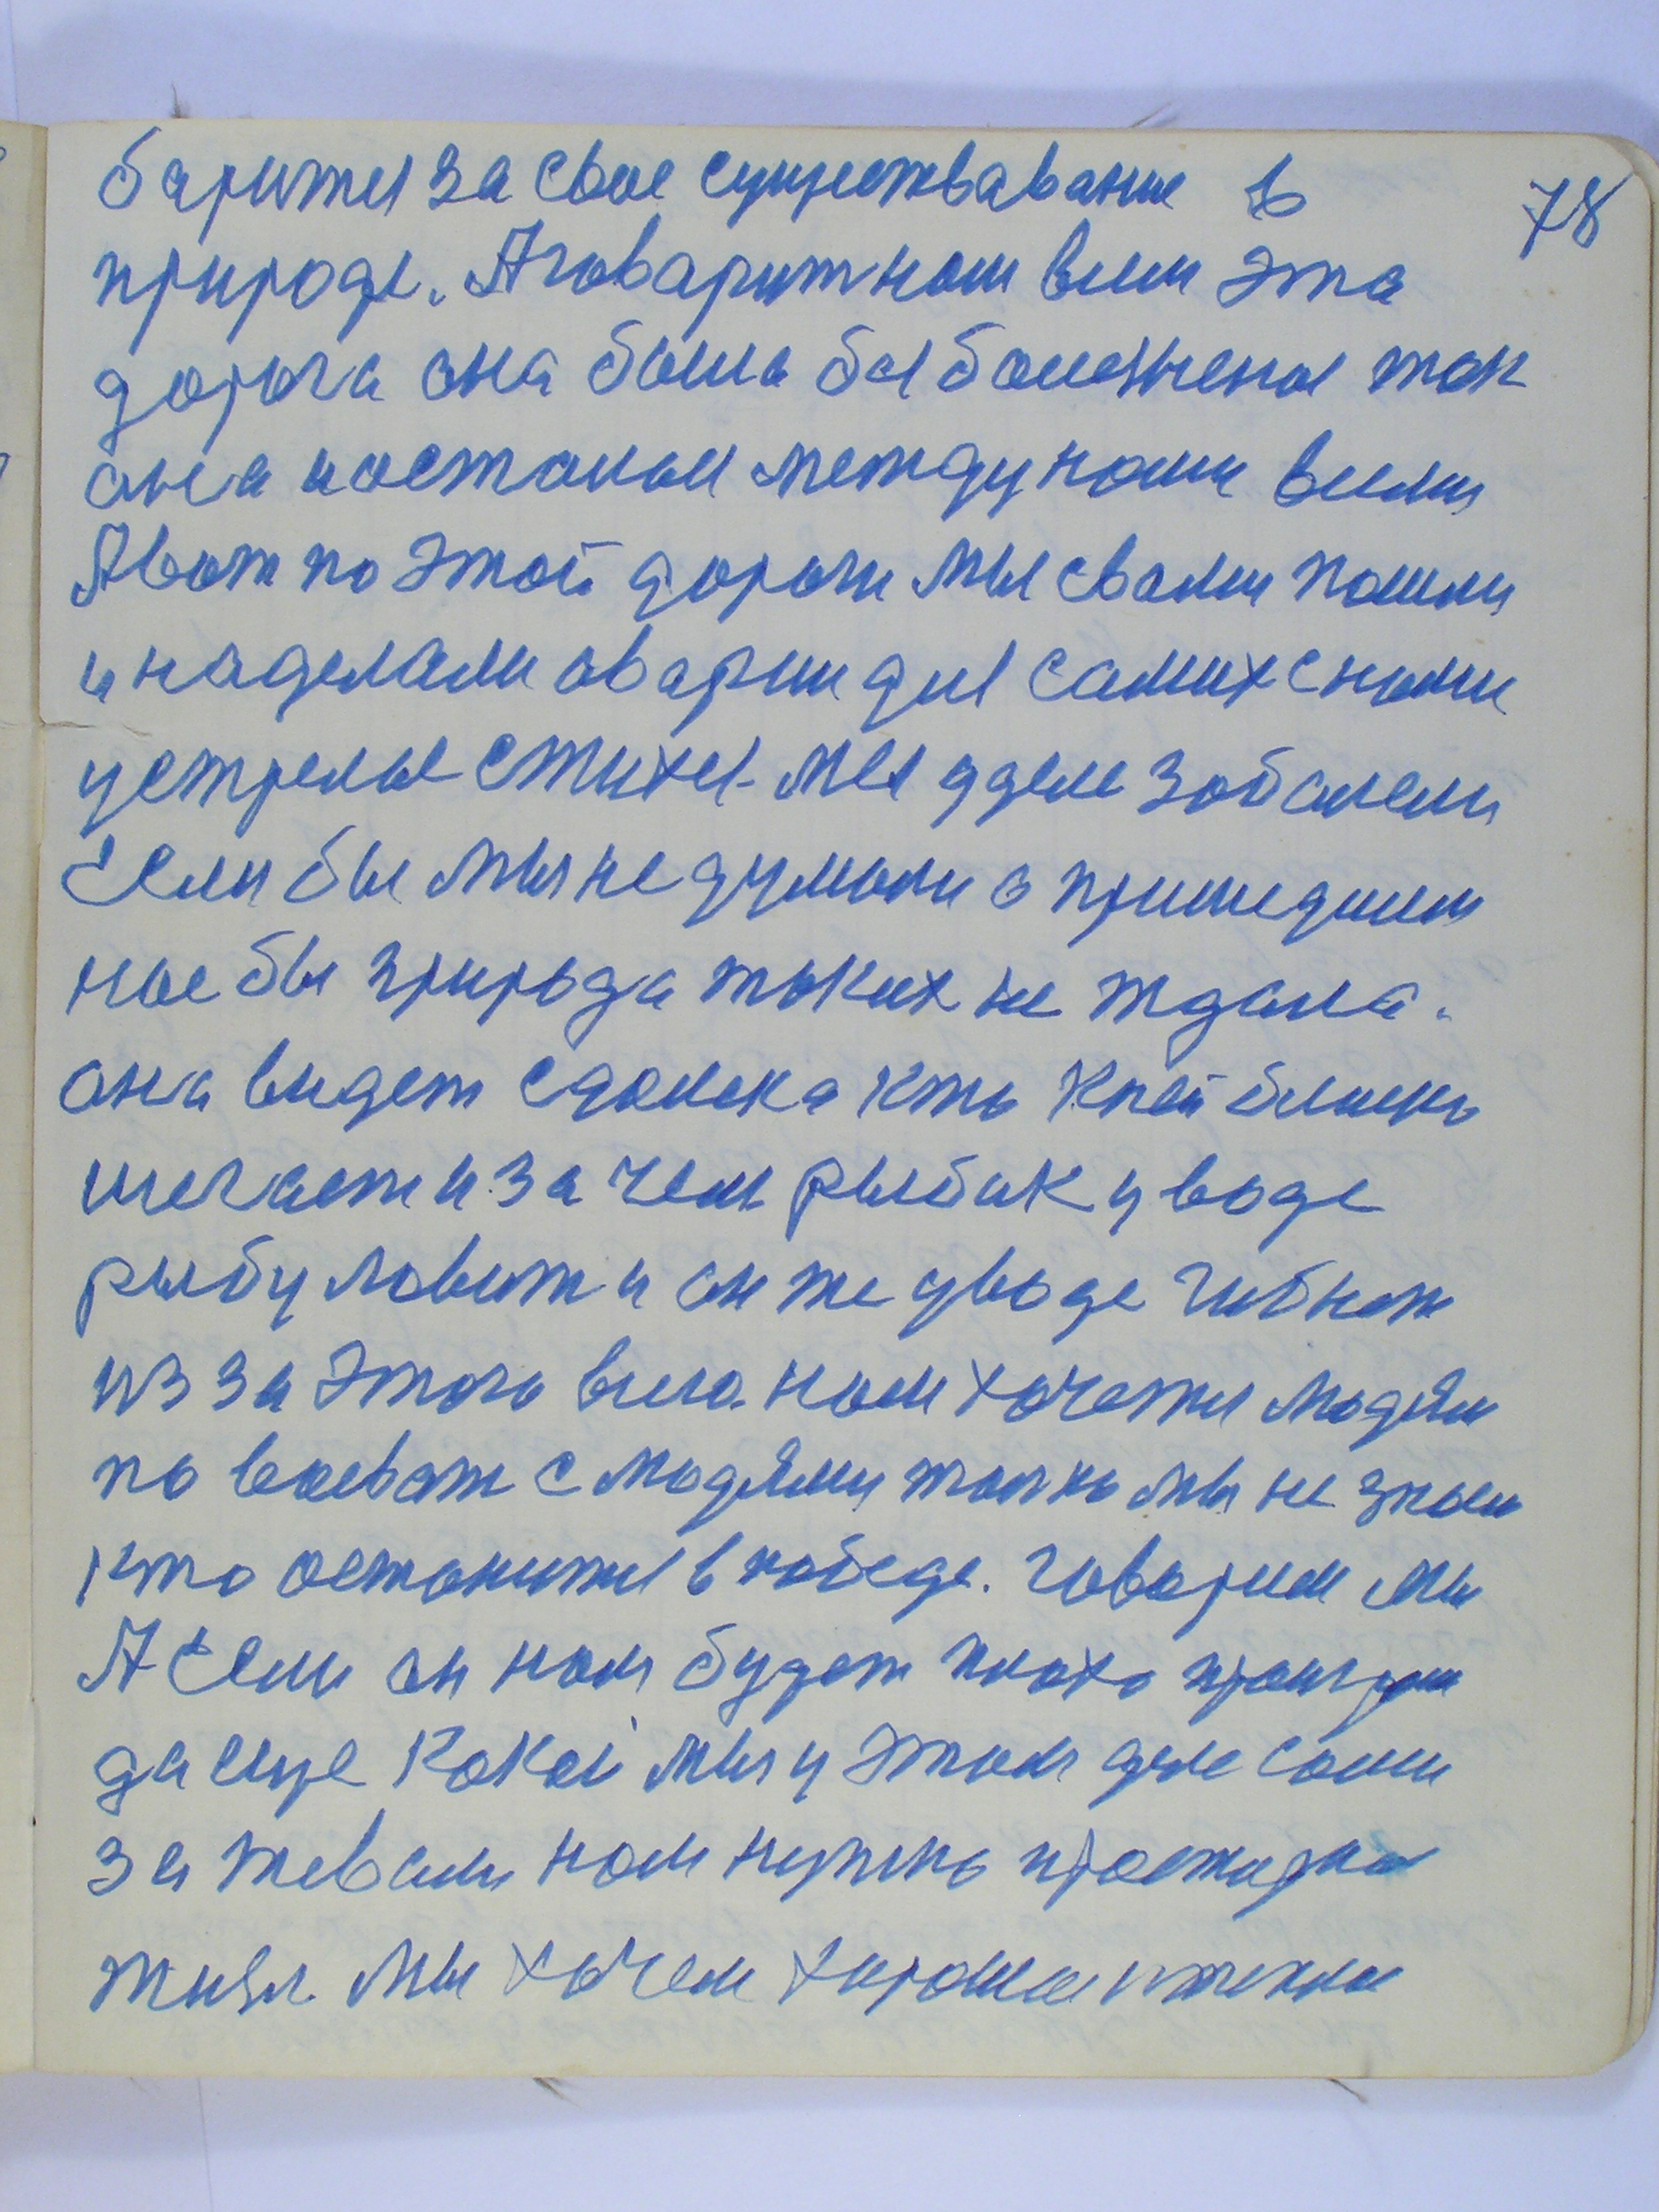 баритя за свое существавание в 78
природе. А говарит нам всем эта
дорога она была бы болезненая так
она и астаная между нами всеми
А вот по этой дороги мы свами пошли
и наделали аварии для самих снами
устрелые стихея мы дделе заболели
Если бы мы не думали о пришедшем
нас бы природа таких не ждала.
она видет сдалека кто к ней близко
шегает и за чем рыбак у воде
рыбу ловит и он же у воде гибнет
из за этого всего. нам хочетя людям
по воеват с людями толко мы не знаем
кто останитя в победе. говарим мы
А если он нам будет плохо
да еще какой мы у этом деле сами
за тевали нам нужно
жизн мы хочем хароше